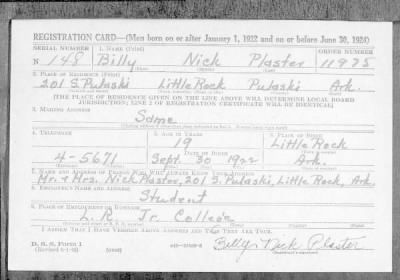 REGISTRATION CARD—(Men born on or after January 1, 1922 and on or before June 30, 1924)
SERIAL NUMBER 1. NAME (Print) ORDER NUMBER
N 148 Billy Nick Plaster 11975
(First) (Middle) (Last)
2. PLACE OF RESIDENCE (Print)
201 S. Pulaski Little Rock Pulaski Ark.
[THE PLACE OF RESIDENCE GIVEN ON THE LINE ABOVE WILL DETERMINE LOCAL BOARD
JURISDICTION; LINE 2 OF REGISTRATION CERTIFICATE WILL BE IDENTICAL]
3. MAILING ADDRESS
Same
4. TELEPHONE 5. AGE IN YEARS 6. PLACE OF BIRTH
19 Little Rock
DATE OF BIRTH
4-5671 Sept. 30 1922 Ark.
7. NAME AND ADDRESS OF PERSON WHO WILL ALWAYS KNOW YOUR ADDRESS
Mr. & Mrs. Nick Plaster, 201 S. Pulaski, Little Rock, Ark.
8. EMPLOYER'S NAME AND ADDRESS
Student
9. PLACE OF EMPLOYMENT OR BUSINESS
L. R. Jr. College
I AFFIRM THAT I HAVE VERIFIED ABOVE ANSWERS AND THAT THEY ARE TRUE.
D. S. S. Form 1
Billy Nick Plaster